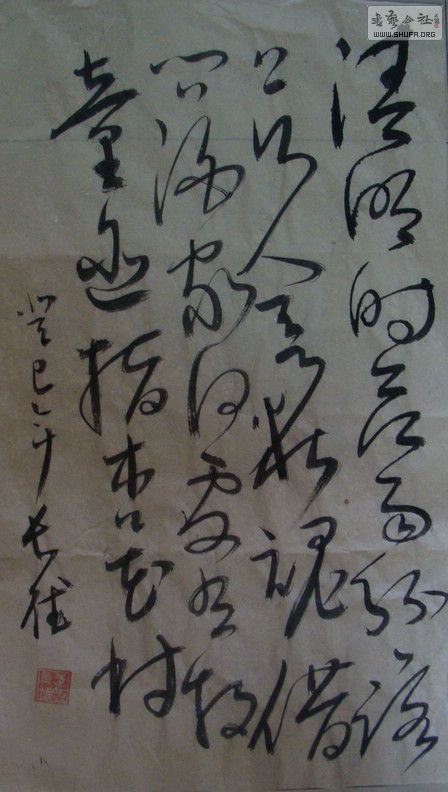 书艺公社
WWW.SHUFA.ORG
清明时节雨纷纷路
上行人欲断魂借
问酒家何处有牧
童遥指杏花村
癸巳年